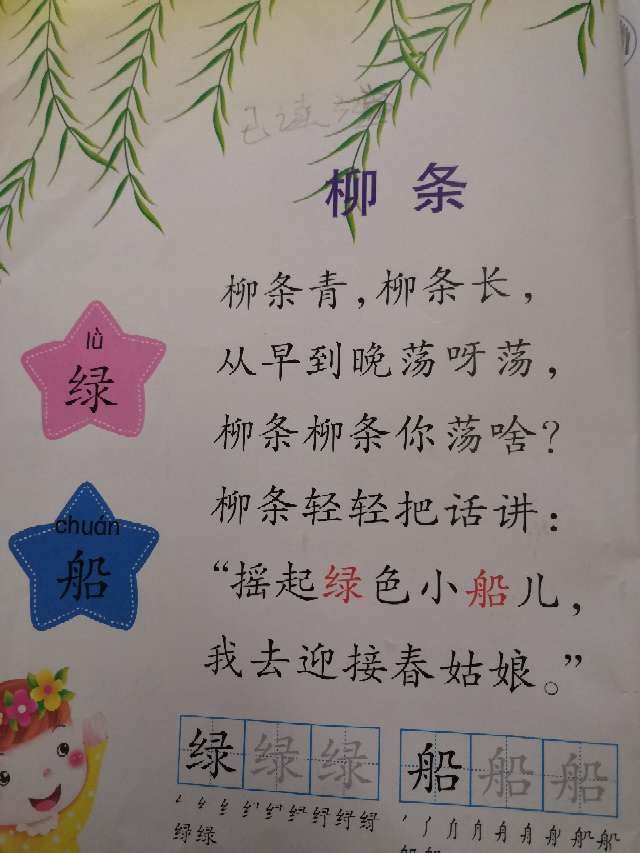 柳条
柳条青,柳条长,
从早到晚荡呀荡,
柳条柳条你荡啥?
柳条轻轻把话讲:
“摇起绿色小船儿,
我去迎接春姑娘。”
lǜ
绿
chuán
船
绿 绿 绿
船 船 船
绿 绿